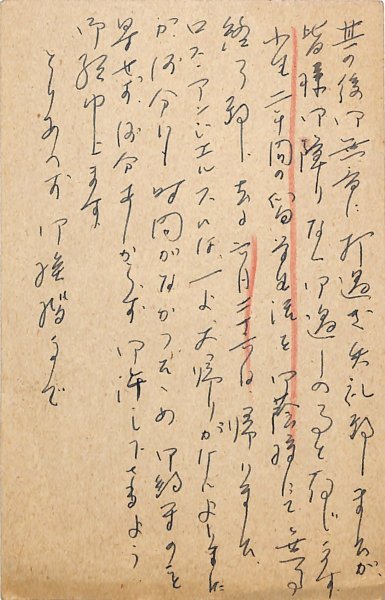 其の後御無音に打過ぎ失礼致しましたが
皆様御障りなく御過しの事と存じます
小生二年間の留学生活を御蔭様にて無事
終了致し、去る六月二十六日、帰りました
ロスアンジェルスには、一寸、お帰りがけによりました
が、何分にも時間がなかつたため御約束のこと
果せず、何分あしからず御許し下さるよう
御願申上ます
とりあへず御挨拶まで